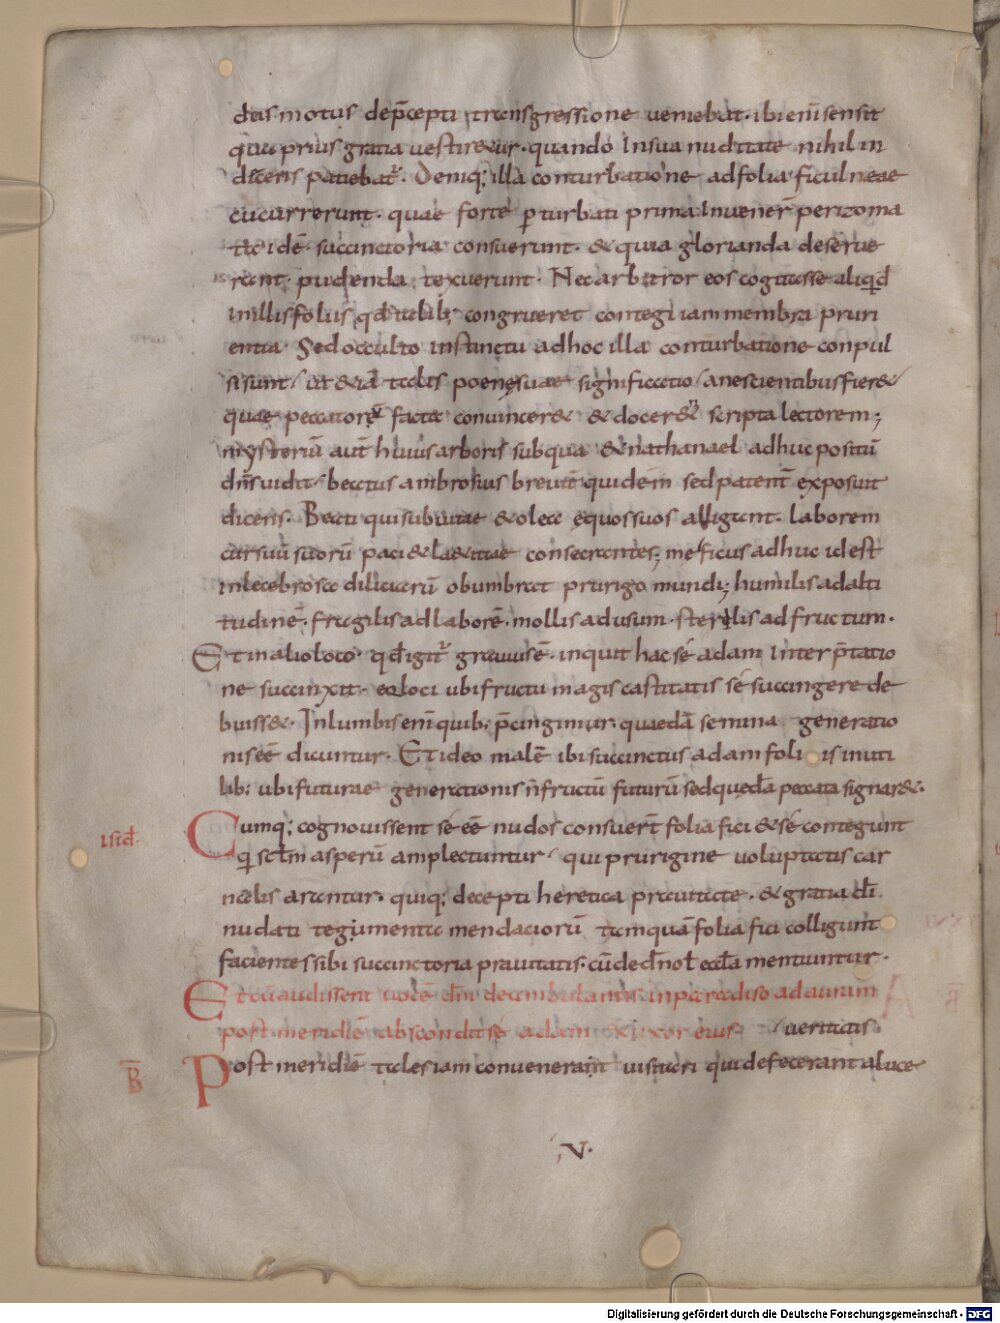 dus motus dep̄cepti transgressione ueniebat· ibi eni̅ sensit
qua prius gratia uestiretur· quando In sua nuditate nihil in
decens patiebat᷑· Deniq; illa conturbatione ad folia ficulneae
cucurrerunt· quae forte p̱turbati prima Inuener̅ perizoma
ta id ē· succinctoria consuerunt· & quia glorianda deserue
rant· pudenda texuerunt· Nec arbitror eos cogitasse aliq͛d
in illis foliis qđ talib; congrueret contegi iam membra pruri
entia· Sed occulto instinctu ad hoc illa conturbatione conpul
si sunt/ ut & iā talis poenę suae significatio/ a nescientibus fier&/
quae peccatorē facta conuincer& & docer& scripta lectorem;
mysteriū aut̅ huius arboris sub qua & nathanael adhuc positū
dn̄s uidit/ beatus ambrosius breuit̅ quidem sed patent̅ exposuit
dicens· Beati qui sub uitae & oleae equos suos alligant· laborem
cursuū suorū paci & laetitiae consecrantes; me ficus adhuc id est
inlecebrosa diliciarū obumbrat prurigo mundi; humilis ad alti
tudinē· fragilis ad laborē· mollis ad usum· sterilis ad fructum·
Et in alio loco· qđ igit᷑ grauius ē· inquit hac sé adam Interp̄tatio
ne succinxit· eo loci ubi fructu magis castitatis sé succingere de
buiss&· In lumbis eni̅ quib; p̄cingimur· quaedā semina generatio
nis eē dicuntur· Et ideo malē ibi succinctus adam foliis inuti
lib; ubi futurae generationis n̄ fructū futurū sed quędā peccata signar&·
isid·
Cumq; cognouissent sé eē nudos consuer̅t folia fici & sé contegunt
q͛ sc̄lm asperū amplectuntur/ qui prurigine uoluptatis car
nalis arentur· quiq; decepti heretica prauitate· & gratia dī
nudati tegumenta mendaciorū tamquā folia fici colligunt
facientes sibi succinctoria prauitatis· cū de dn̄o ł eccl̄a mentiuntur·
Et cū audissent uocē dn̄i deambulantis in paradiso ad auram
post meridiē abscondit sé adam & uxor eius / ueritatis·
B̄
Post meridiē tales iam conueneram̄t uisitari qui defecerant a luce
·V·
Digitalisierung gefördert durch die Deutsche Forschungsgemeinschaft - DFG